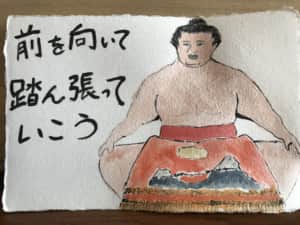 前を向いて
踏ん張って
いこう